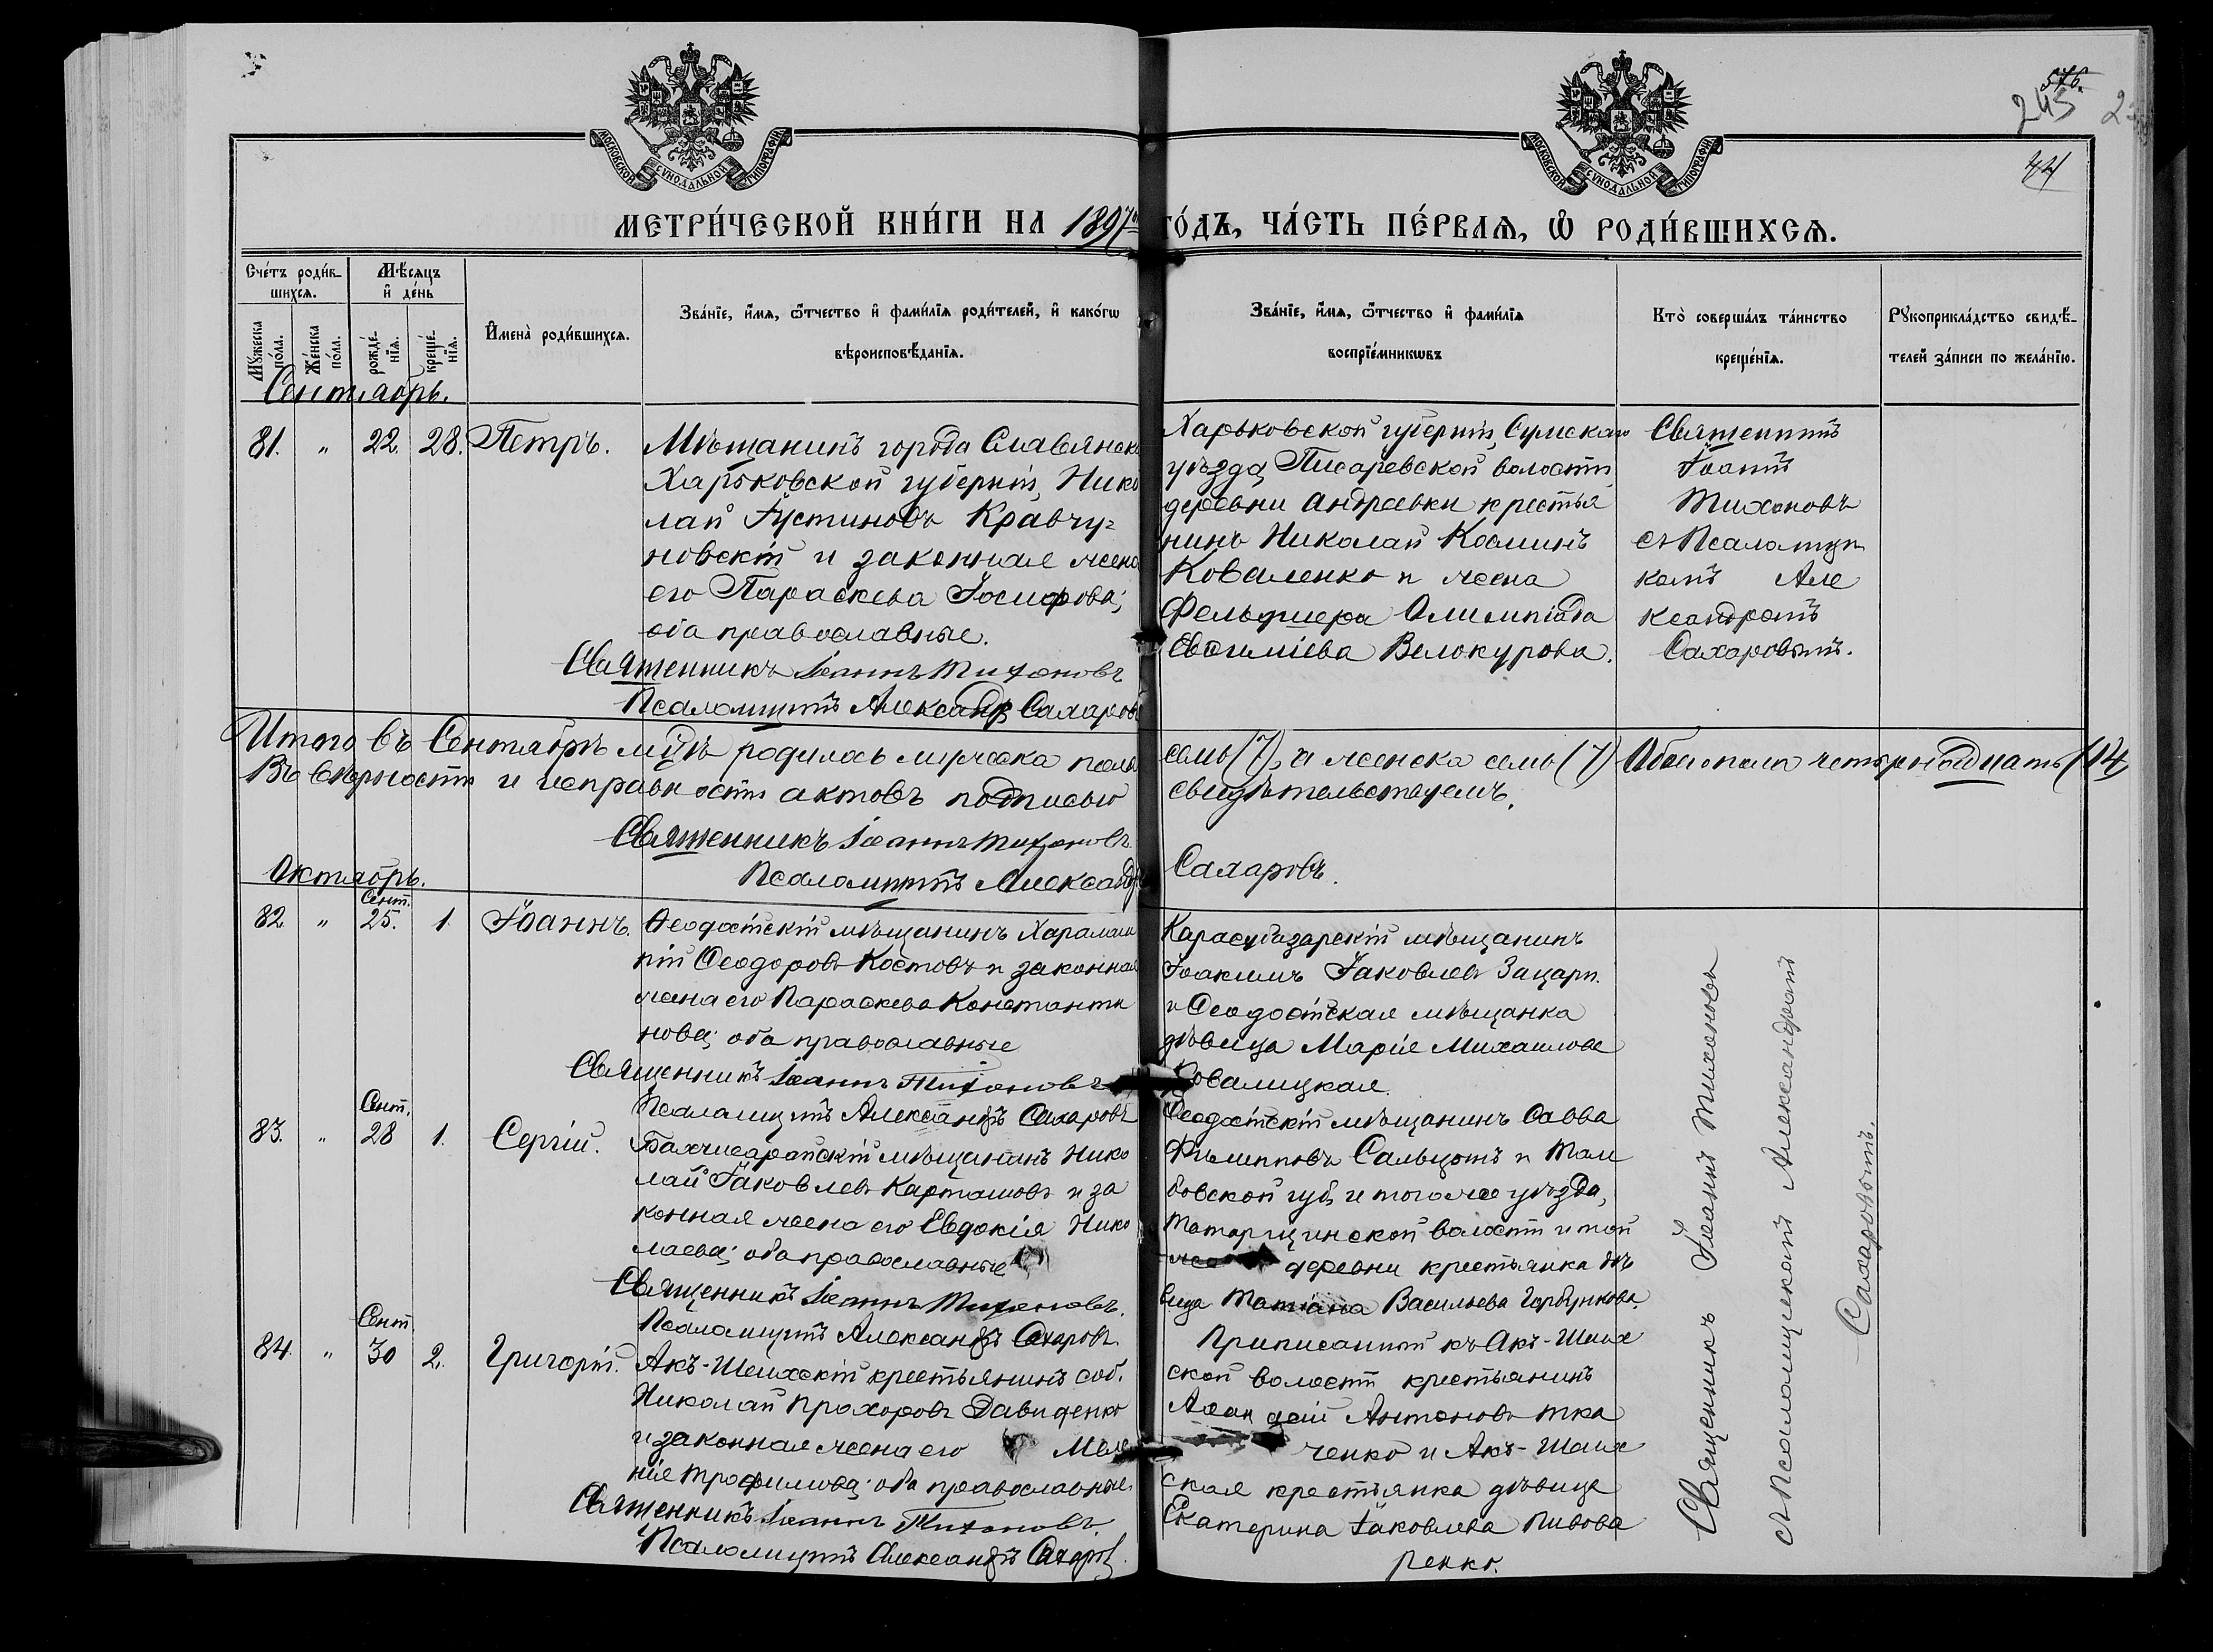 576.
245
44
МОСКОВСКОЙ СѴНОДАЛЬНОЙ ТИПОГРАФІИ
МОСКОВСКОЙ СѴНОДАЛЬНОЙ ТИПОГРАФІИ
МЕТРИ́ЧЕСКОЙ КНИ́ГИ НА 1897 ГО́ДЪ, ЧА́СТЬ ПЕ́РВАѦ, Ѡ РОДИ́ВШИХСѦ.
Сче́тъ роди́в-
шихсѧ.
Мѣ́сѧцъ
и҆ де́нь
Мꙋ́жеска
по́ла.
Же́нска
по́ла.
рожде́-
нїѧ.
креще́-
нїѧ.
И҆мена̀ роди́вшихсѧ.
Зва́нїе, и҆́мѧ, ѻ҆́тчество и҆ фами́лїѧ роди́телей, и҆ како́гѡ
вѣроисповѣ́данїѧ.
Зва́нїе, и҆́мѧ, ѻ҆́тчество и҆ фами́лїѧ
воспрїе́мникѡвъ
Кто̀ соверша́лъ та́инство
креще́нїѧ.
Рꙋкоприкла́дство свидѣ́-
телей за́писи по жела́нїю.
Сентябрь.
81. " 22. 28. Петръ.
Мѣщанинъ города Славянска
Харьковской губерніи, Нико
лай Іустиновъ Кравчу-
новскій и законная жена
его Параскева Іосифова;
оба православные.
Священникъ Іоаннъ Тихоновъ
Псаломщикъ Александръ Сахаровъ
Харьковской губерніи, Сумскаго
уѣзда, Писаревской волости
деревни Андреевки крестья
нинъ Николай Косминъ
Коваленко и жена
Фельдшера Олимпіада
Евсигніева Белокурова.
Священникъ
Іоаннъ
Тихоновъ
съ Псаломщи
комъ Але
ксандромъ
Сахаровымъ.
Итого въ Сентябрѣ м҃цѣ родилось мужеска пола семь (7), а женска семь (7) Обоего пола четырнадцать (14
Въ вѣрности и исправности актовъ подписью свидѣтельствуемъ.
Священникъ Іоаннъ Тихоновъ.
Псаломщикъ Александръ Сахаровъ.
Октябрь.
Сент.
82. " 25. 1. Іоаннъ.
Ѳеодосійскій мѣщанинъ Харалам
пій Ѳеодоровъ Костовъ и законная
жена его Параскева Константи
нова; оба православные
Священникъ Іоаннъ Тихоновъ
Псаломщикъ Александръ Сахаровъ
Карасубазарскій мѣщанинъ
Іоакимъ Іаковлевъ Зацари.
и Ѳеодосійская мѣщанка
дѣвица Марія Михаилова
Ковалицкая.
Сент.
83. " 28 1. Сергій.
Бахчисарайскій мѣщанинъ Нико
лай Іаковлевъ Карташовъ и за
конная жена его Евдокія Нико
лаева; оба православные
Священникъ Іоаннъ Тихоновъ.
Псаломщикъ Александръ Сахаровъ.
Ѳеодосійскій мѣщанинъ Савва
Филипповъ Сальцотъ и Там
бовской губ, и того же уѣзда,
волости и той
же деревни крестьянка дѣ
вица Татіана Васильева Горбункова.
Сент
84. " 30 2. Григорій.
Акъ-Шеихскій крестьянинъ соб.
Николай Прохоровъ Давиденко
и законная жена его Мела
нія Трофимова; оба православные.
Священникъ Іоаннъ Тихоновъ.
Псаломщикъ Александръ Сахаровъ.
Приписанный къ Акъ-Шеих
ской волости крестьянинъ
Антоновъ Тка
ченко и Акъ-Шеих
ская крестьянка дѣвица
Екатерина Іаковлева Пивова
ренко.
Священникъ Іоаннъ Тихоновъ
съ Псаломщикомъ Александромъ
Сахаровымъ.